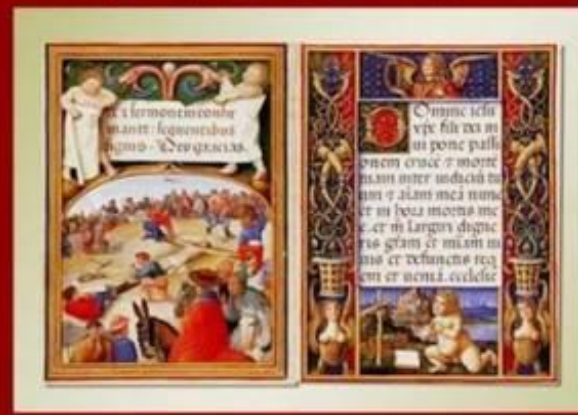 et sermonem confir
mante sequentibus
signis · Deo gracias.
Omine iesu
xpe fili dei vi
vi pone passi
onem crucē ⁊ mortē
tuam inter iudiciū tu
um ⁊ aīam meā nunc
et in hora mortis me
e. et m largiri digne
ris grām et miam vi
uis et defunctis req
em et ueniā. ecclesie